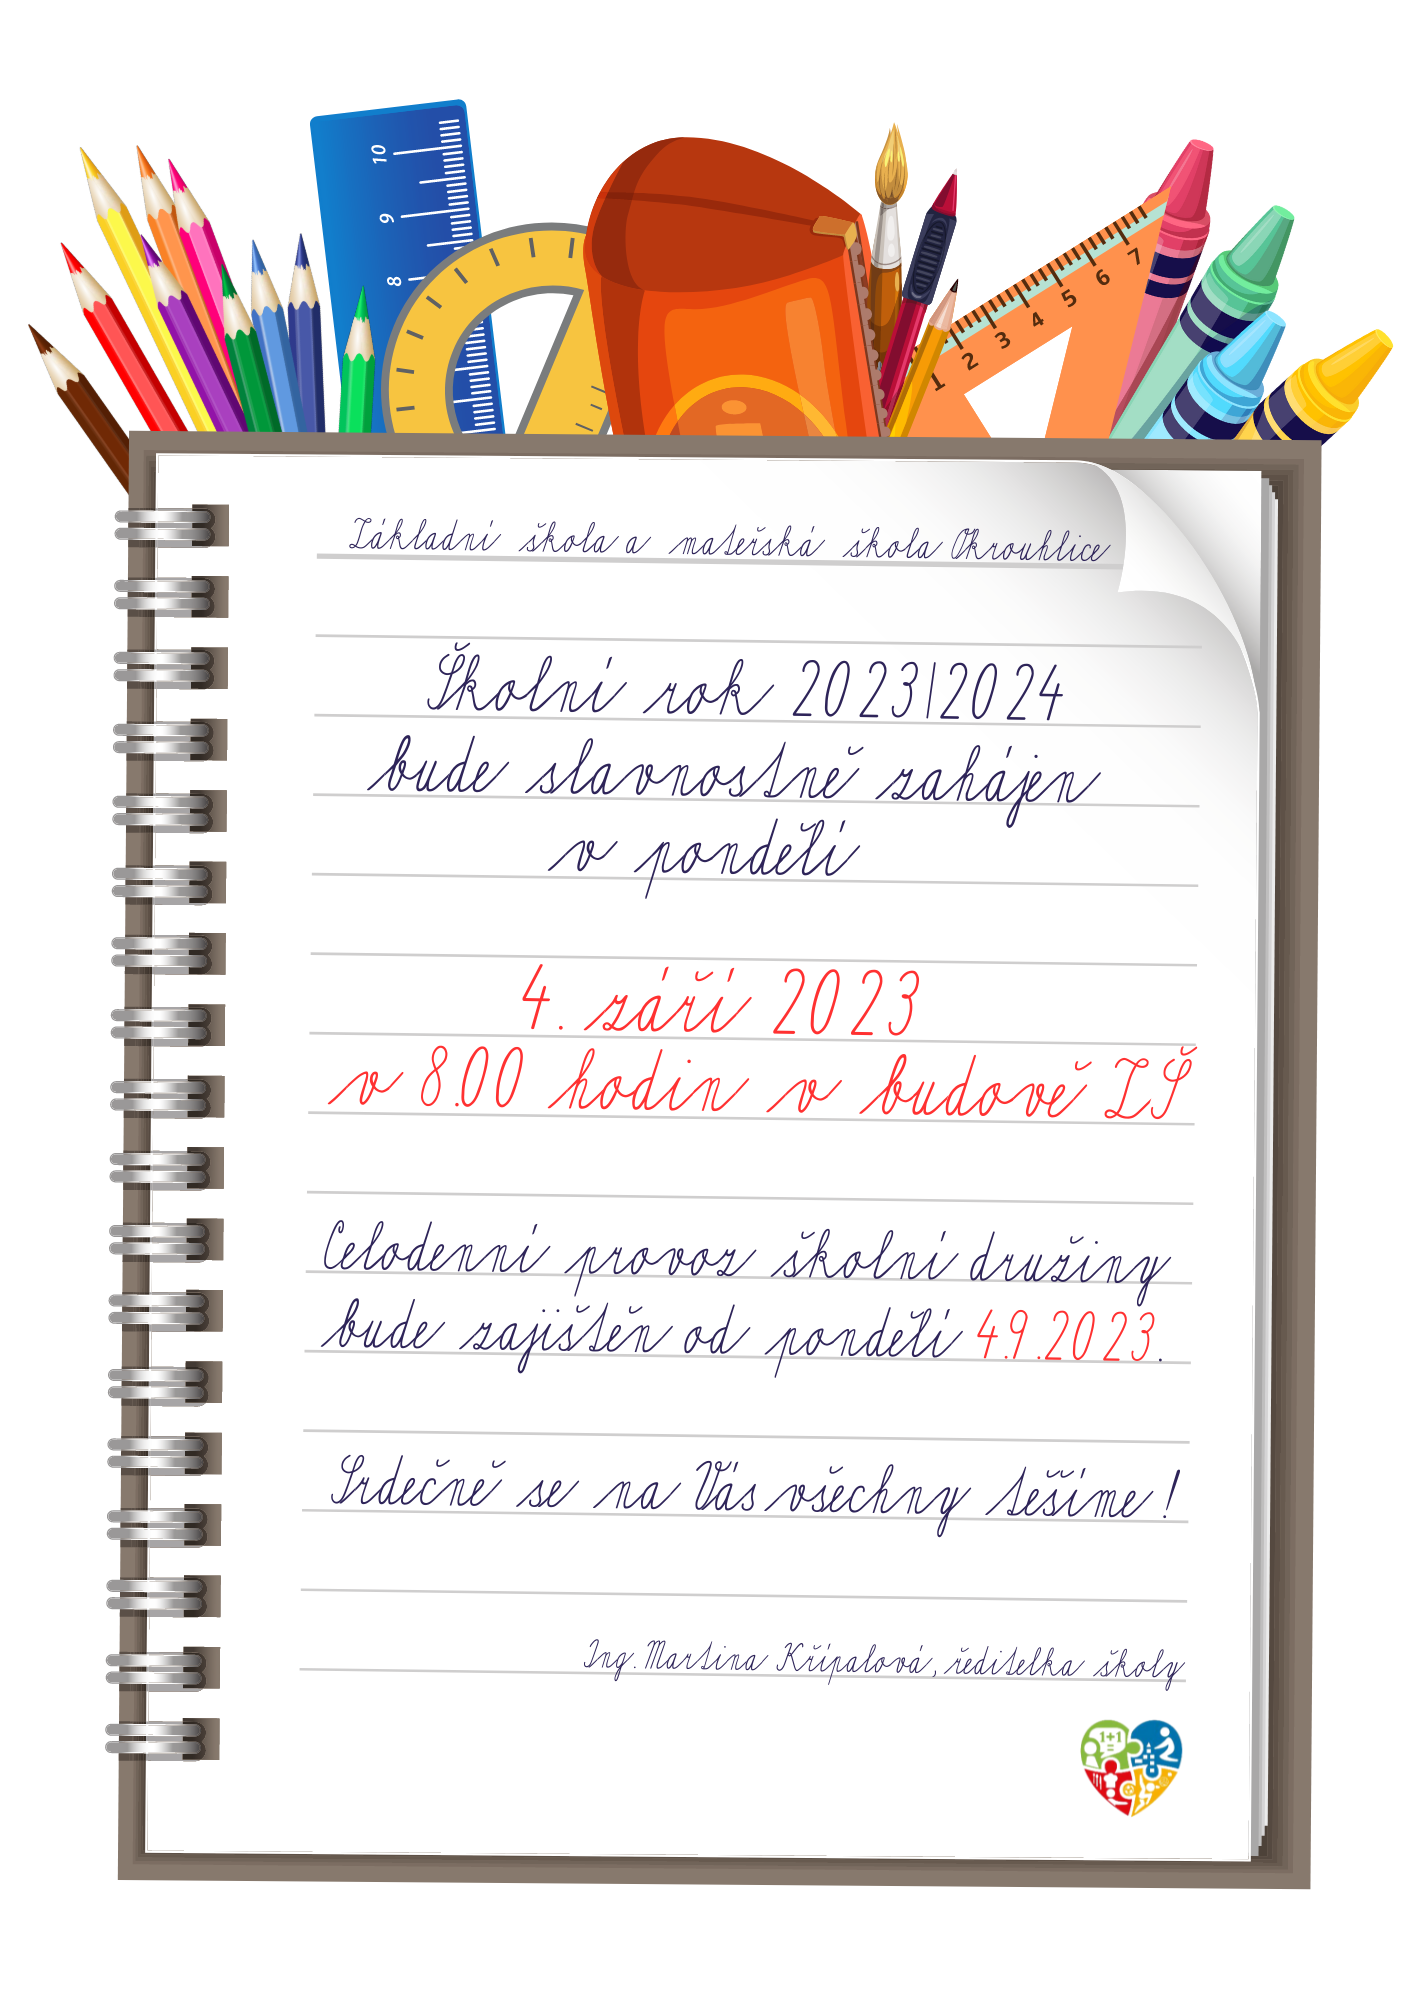 10
9
8
1 2 3 4 5 6 7
Základní škola a mateřská škola Okrouhlice
Školní rok 2023|2024
bude slavnostně zahájen
v pondělí
4. září 2023
v 8.00 hodin v budově ZŠ
Celodenní provoz školní družiny
bude zajištěn od pondělí 4.9.2023.
Srdečně se na Vás všechny těšíme!
Ing. Martina Křípalová, ředitelka školy
1+1
=